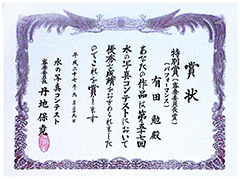 賞状
特別賞(審査委員長賞)
(パフォーマンス)
有田 勉殿
あなたの作品は第三十七回
水の写真コンテストにおいて
優秀な成績をおさめられました
のでこれを賞します
平成二十七年九月五日
水の写真コンテスト
審査委員長 丹地保堯